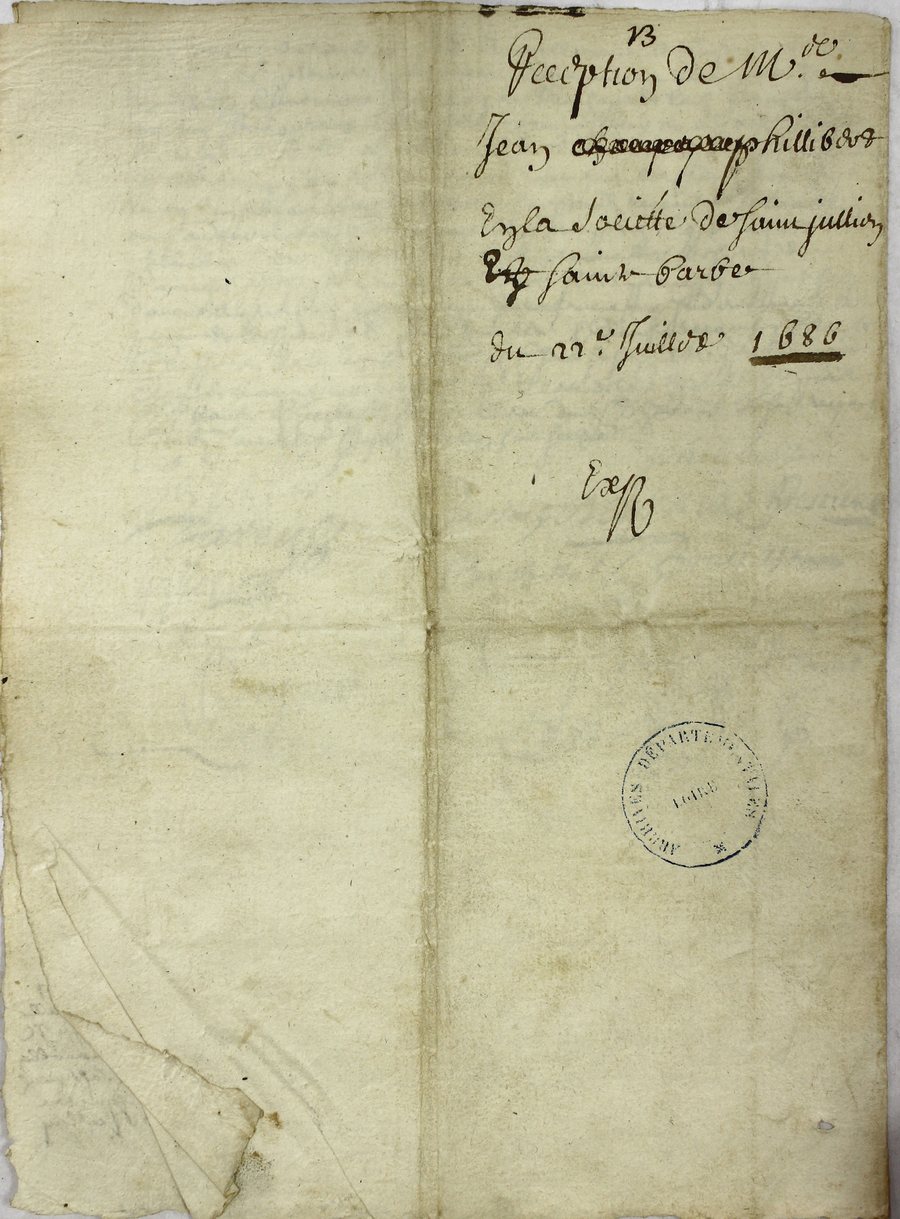 13
Reception de M.re
Jean phillibert
En la Societte de saint jullien
Et sainte barbe
du 22.e Juillet 1686
Ex R
ARCHIVES DÉPARTEMENTALES
LOIRE